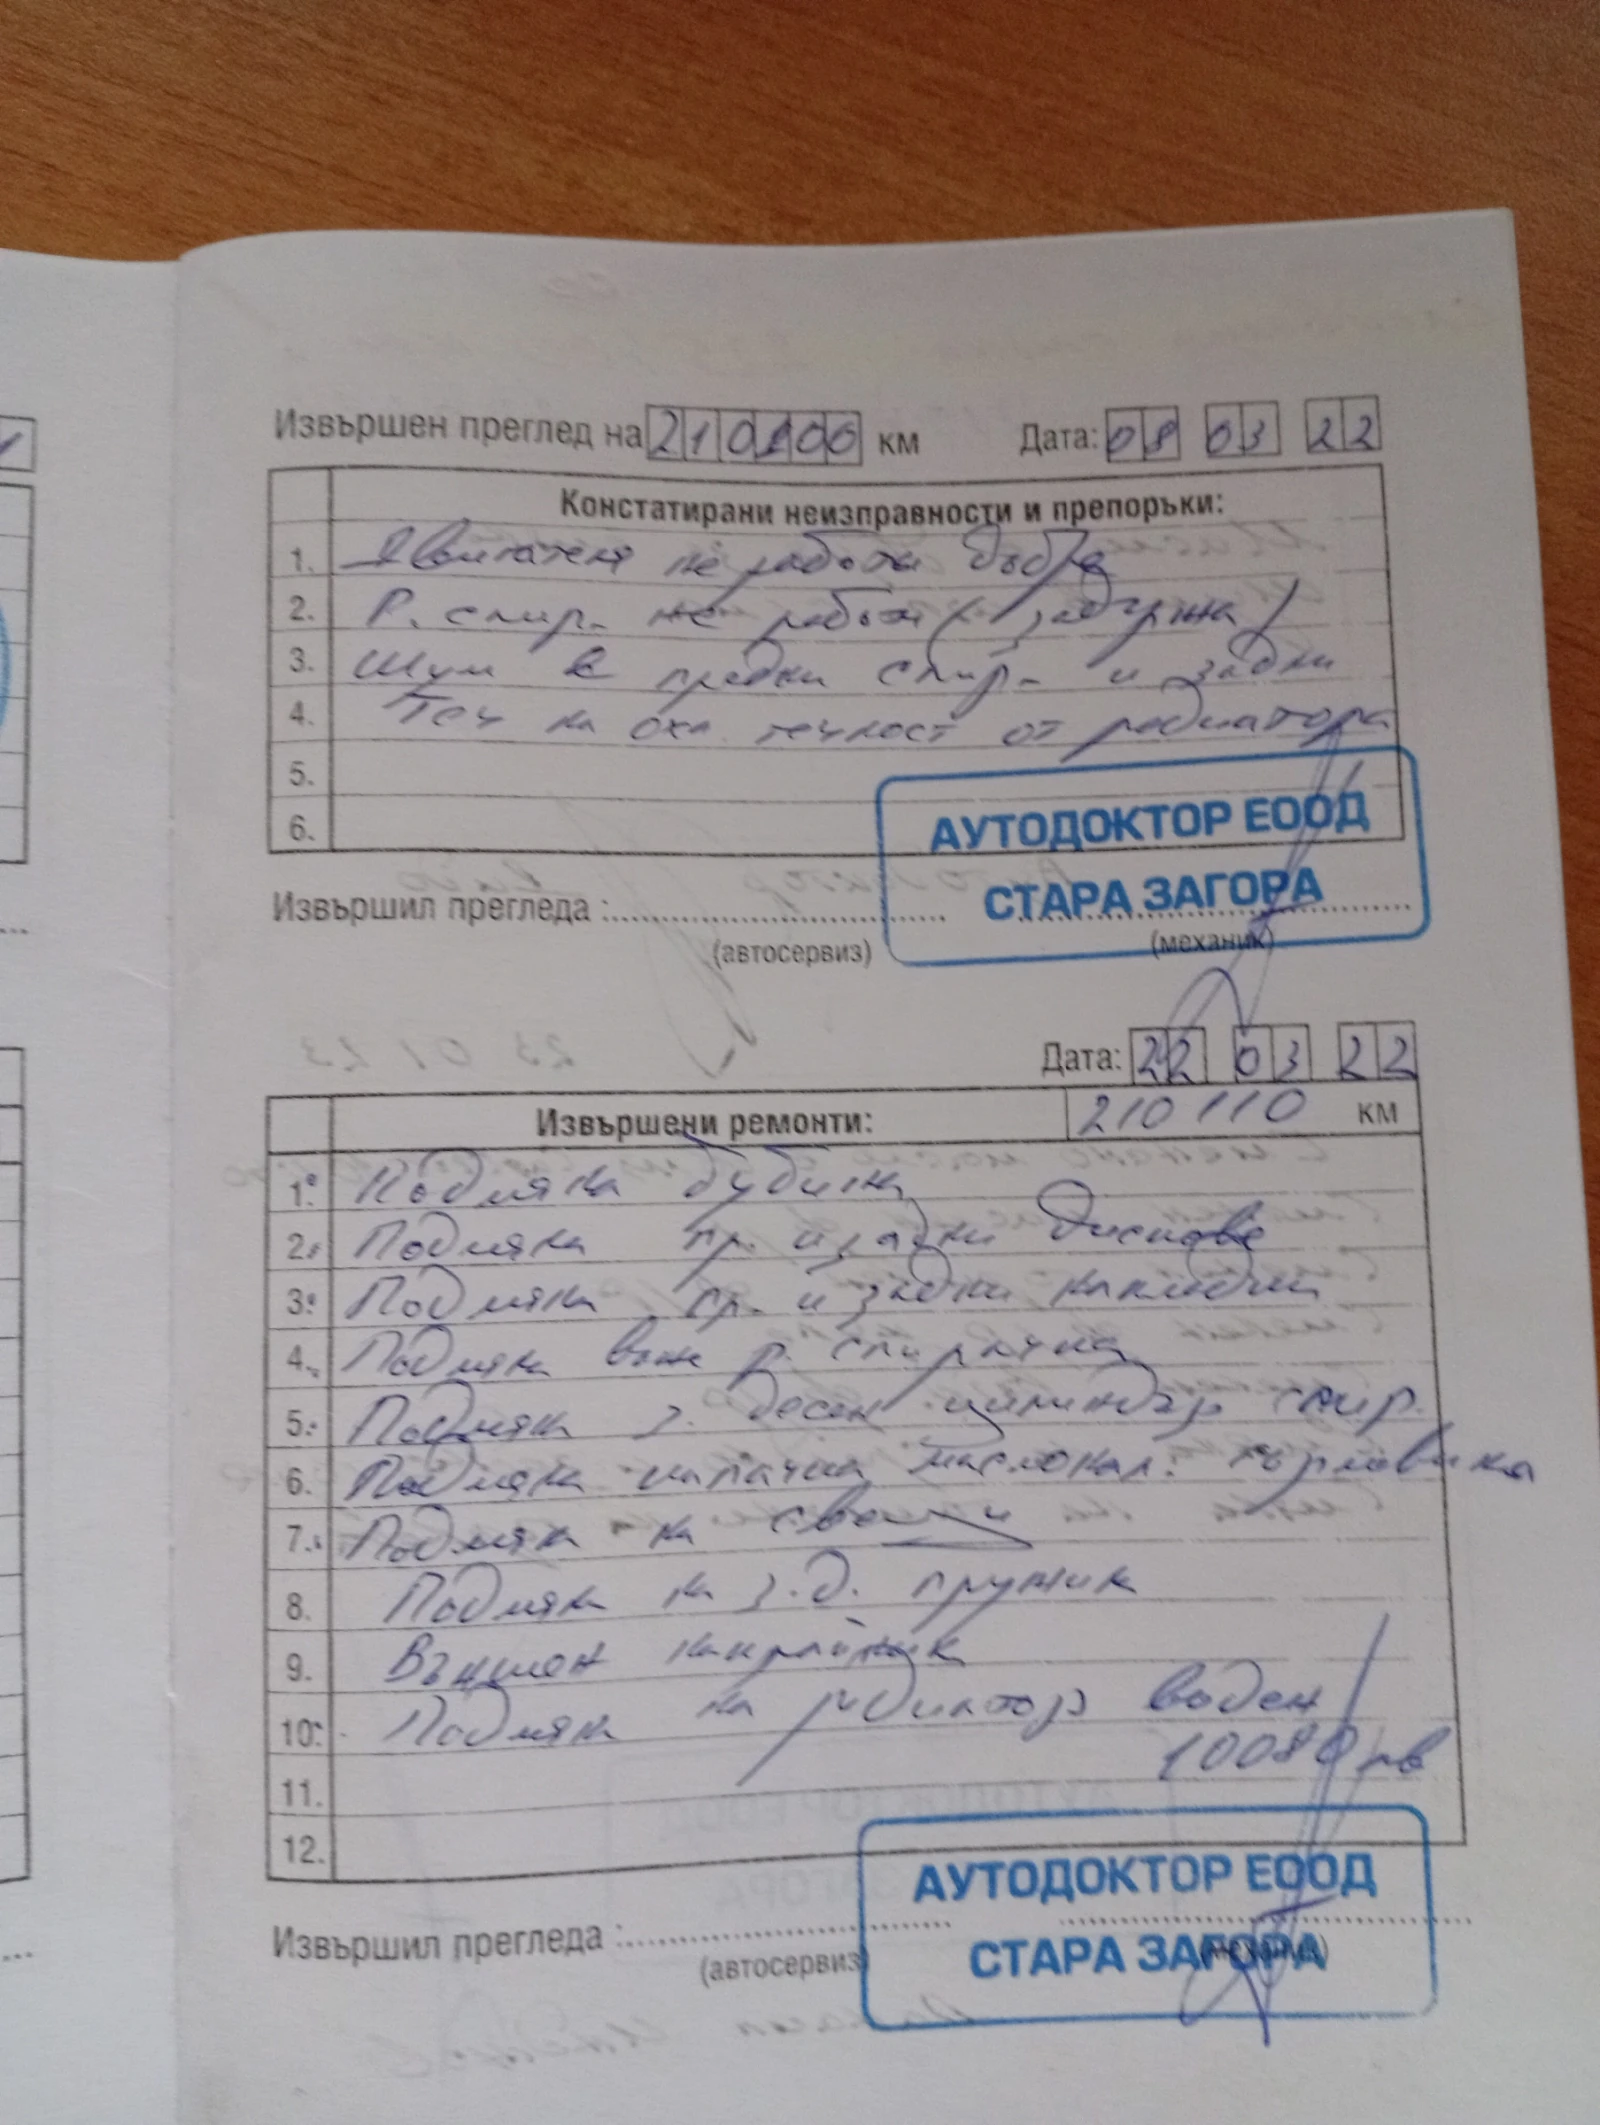 Извършен преглед на 210100 км Дата: 08 03 22
Констатирани неизправности и препоръки:
1. Двигателя не работи добре
2. Р. спир. не работи ( задържа )
3. Шум в предни спир. и задни
4. Теч на охл. течност от радиатора
5.
6.
АУТОДОКТОР ЕООД
СТАРА ЗАГОРА
Извършил прегледа :
(автосервиз) (механик)
Дата: 22 03 22
Извършени ремонти: 210 110 км
1. Подмяна бубина
2. Подмяна пр. и задни дискове
3. Подмяна пр. и задни накладки
4. Подмяна въже р. спирачка
5. Подмяна з. десен цилиндър спир.
6. Подмяна капачка маслонал. гърловина
7. Подмяна на свещи
8. Подмяна на з.д. пружина
9. Външен накрайник
10. Подмяна на радиатор воден
11.
12.
АУТОДОКТОР ЕООД
СТАРА ЗАГОРА
Извършил прегледа :
(автосервиз) (механик)